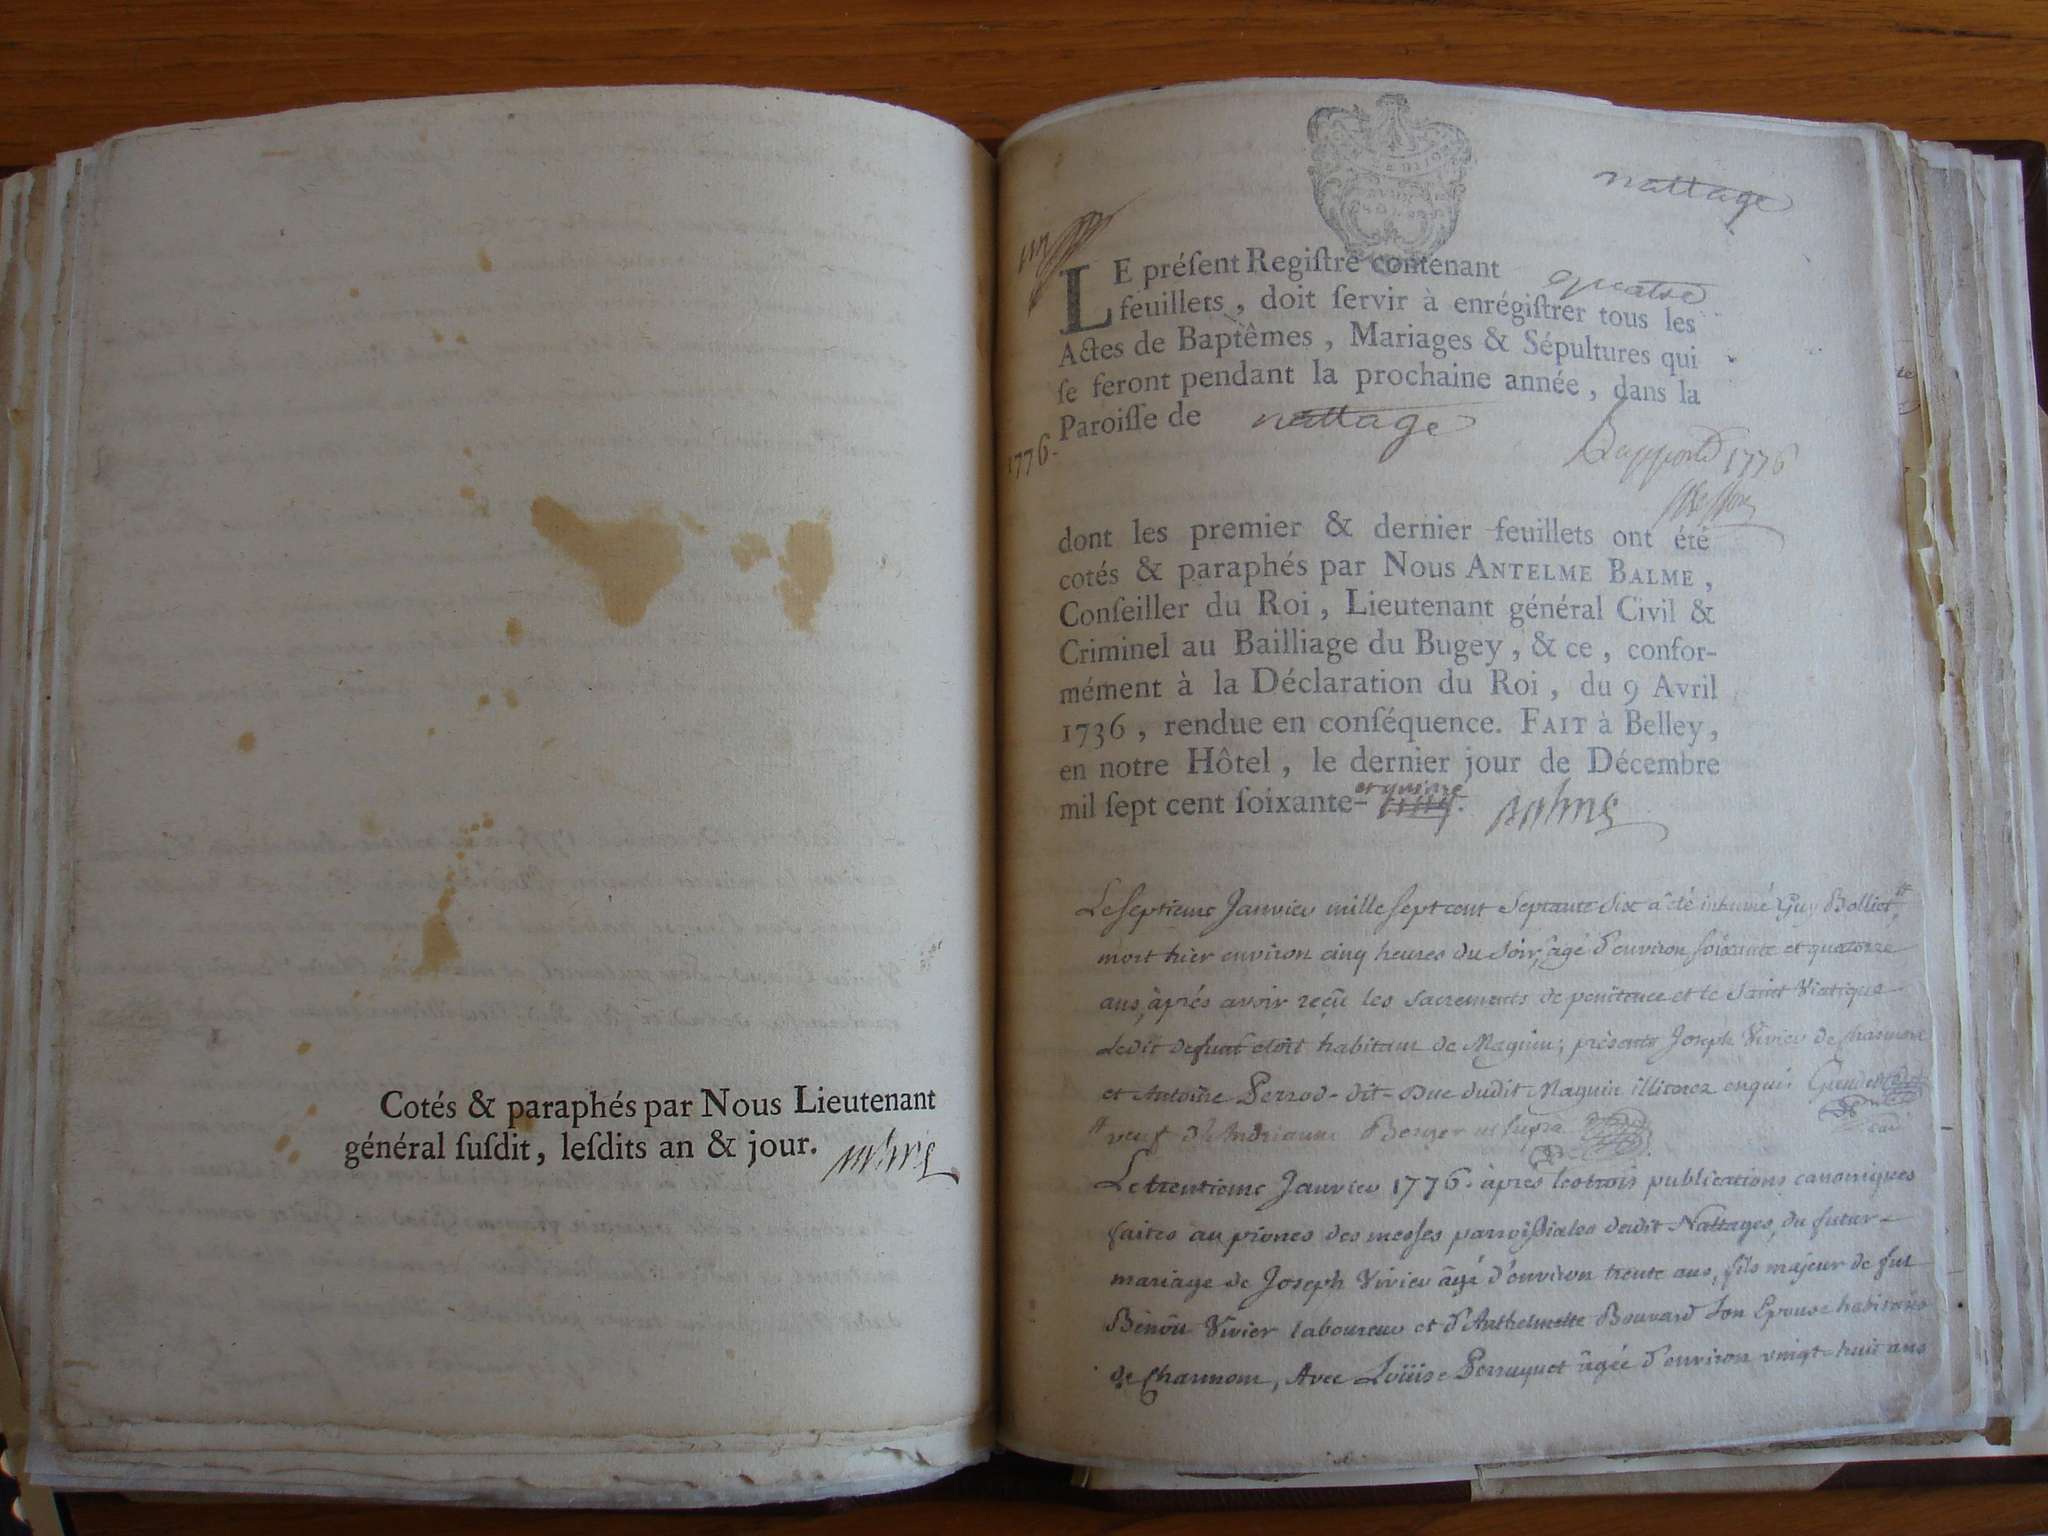 Cotés & paraphés par Nous Lieutenant
général ſuſdit, leſdits an & jour.
nattage
LE préſent Regiſtre contenant quatre
feuillets, doit ſervir à enrégiſtrer tous les
Actes de Baptêmes, Mariages & Sépultures qui
ſe feront pendant la prochaine année, dans la
Paroiſſe de nattage
1776.
Rapporté 1776
dont les premier & dernier feuillets ont été
cotés & paraphés par Nous ANTELME BALME,
Conſeiller du Roi, Lieutenant général Civil &
Criminel au Bailliage du Bugey, & ce, confor-
mément à la Déclaration du Roi, du 9 Avril
1736, rendue en conſéquence. FAIT à Belley,
en notre Hôtel, le dernier jour de Décembre
mil ſept cent ſoixante- et quinze
Le septieme Janvier mille sept cent septante six a été inhumé Guy Bolliet,
mort hier environ cinq heures du soir, âgé d'environ soixante et quatorze
ans, après avoir reçû les sacrements de penitence et le saint Viatique
Ledit defunt etoit habitant de Maguin; présents Joseph Vivier de Charmont
et Antoine Perrod-dit-Duc dudit Maguin illiterez enquis
veuf d'Andrianne Berger ut supra
Le trentieme Janvier 1776. après les trois publications canoniques
faites au prônes des messes parroissiales dudit Nattages, du futur
mariage de Joseph Vivier âgé d'environ trente ans, fils majeur de fut
Benoît Vivier laboureur et d'Anthelmette Bouvard son Epouse habitans
de Charmont, Avec Loüise Perruquet âgée d'environ vingt-huit ans